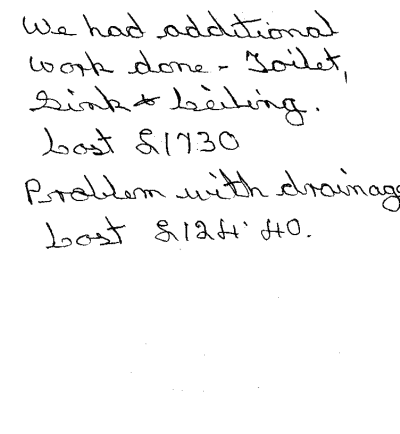 We had additional
work done - Toilet,
Sink & Ceiling.
Cost £1730
Problem with drainag
Cost £124.40.